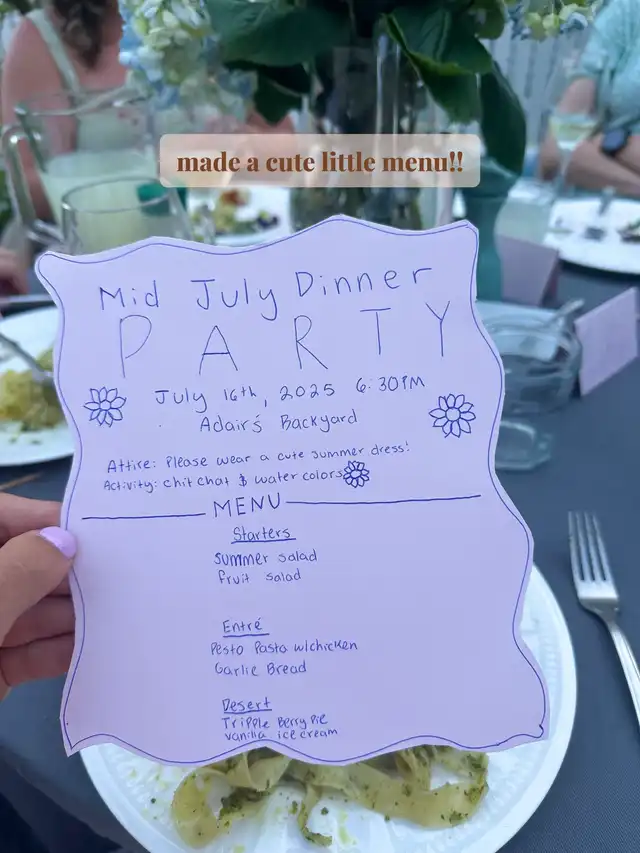 made a cute little menu!!
Mid July Dinner
PARTY
July 16th, 2025 6:30PM
Adair's Backyard
Attire: Please wear a cute summer dress!
Activity: chit chat & water colors
MENU
Starters
summer salad
fruit salad
Entré
Pesto Pasta w/chicken
Garlic Bread
Desert
Tripple Berry Pie
vanilla ice cream